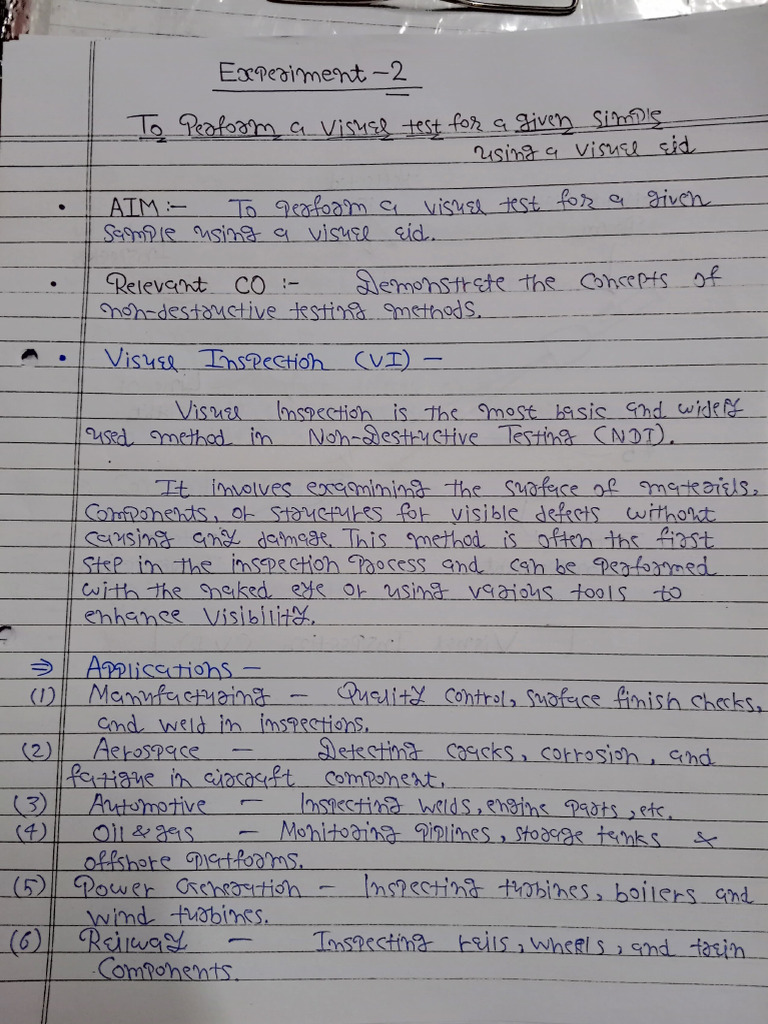 Experiment - 2
To Perform a visual test for a given simple
using a visual aid
• AIM :- To perform a visual test for a given
sample using a visual aid.
• Relevant CO :- Demonstrate the concepts of
non-destructive testing methods.
• Visual Inspection (VI) -
Visual Inspection is the most basic and widely
used method in Non-Destructive Testing (NDT).
It involves examining the surface of materials,
components, or structures for visible defects without
causing any damage. This method is often the first
step in the inspection process and can be performed
with the naked eye or using various tools to
enhance visibility.
⇒ Applications -
(1) Manufacturing - Quality control, surface finish checks,
and weld in inspections.
(2) Aerospace - Detecting cracks, corrosion, and
fatigue in aircraft component.
(3) Automotive - Inspecting welds, engine parts, etc.
(4) Oil & gas - Monitoring piplines, storage tanks &
offshore platforms.
(5) Power Generation - Inspecting turbines, boilers and
wind turbines.
(6) Railway - Inspecting rails, wheels, and train
components.